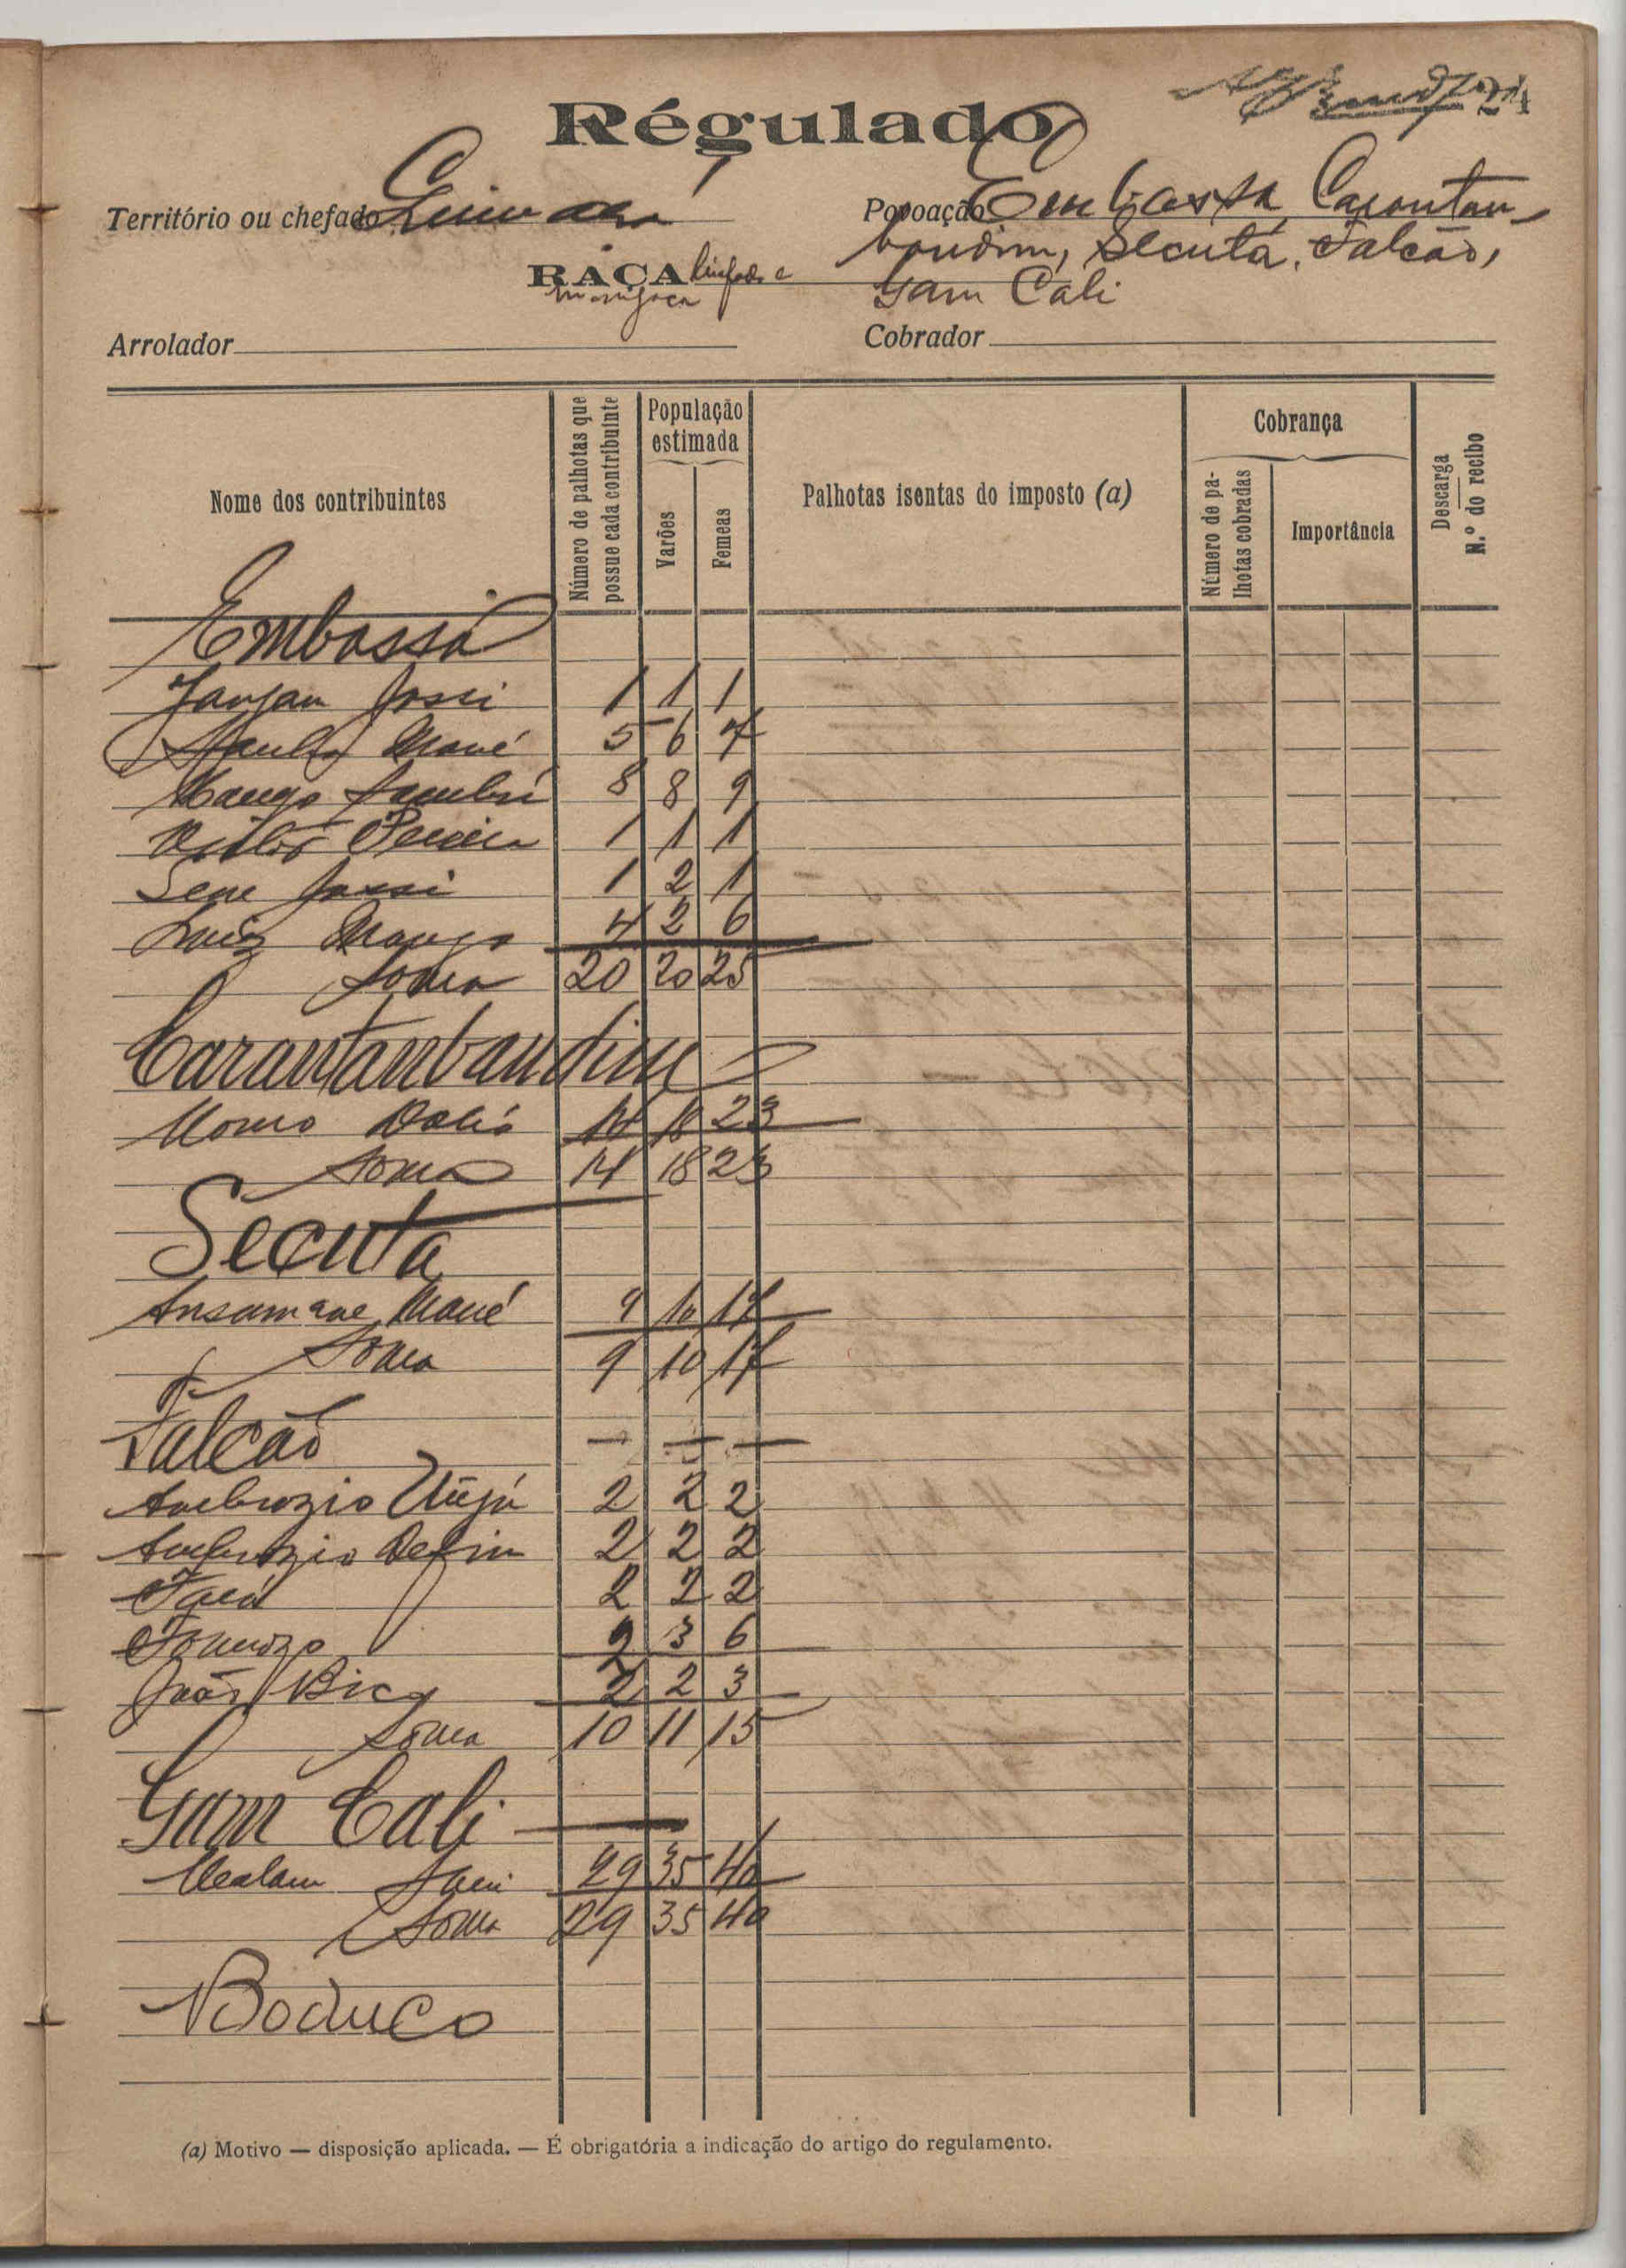 24
Régulado
Território ou chefado
Povoação Embassá, Carantan-
RAÇA
bandim, Secuta, Falcão,
manjaca
Gam Cali
Arrolador
Cobrador
Nome dos contribuintes
Número de palhotas que possue cada contribuinte
População estimada
Varões
Femeas
Palhotas isentas do imposto (a)
Cobrança
Número de palhotas cobradas
Importância
Descarga
N.º do recibo
Embassá
Janjan Jossi 1 1 1
Mané 5 6 7
8 8 9
Pereira 1 1 1
Sene Jassi 1 2 1
Luiz Mango 4 2 6
Soma 20 20 25
Carantanbandim
Momo 14 18 23
Soma 14 18 23
Secuta
Ansumane Mané 9 10 17
Soma 9 10 17
Falcão — — —
Ambrozio 2 2 2
Ambrozio 2 2 2
2 2 2
2 3 6
João Bico 2 2 3
Soma 10 11 15
Gam Cali —
29 35 40
Soma 29 35 40
Boduco
(a) Motivo — disposição aplicada. — É obrigatória a indicação do artigo do regulamento.